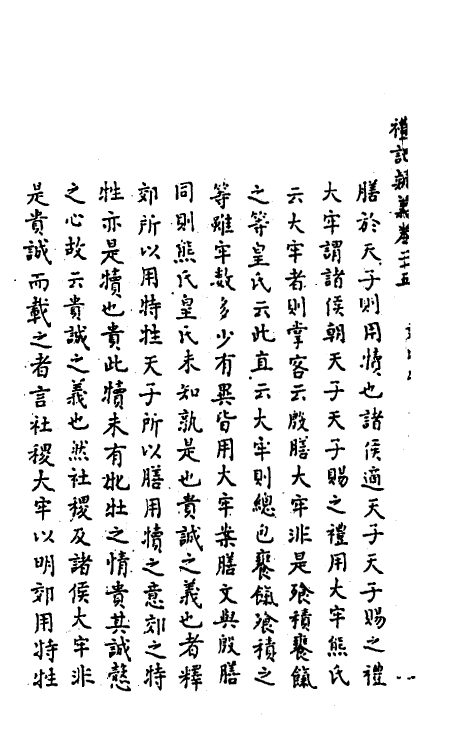 禮記新義卷二十五
膳於天子則用犢也諸侯適天子天子賜之禮
大牢謂諸侯朝天子天子賜之禮用大牢熊氏
云大牢者則掌客云殷膳大牢非是飧積饔餼
之等皇氏云此直云大牢則總包饔餼飧積之
等雖牢數多少有異皆用大牢案膳文與殷膳
同則熊氏皇氏未知孰是也貴誠之義也者釋
郊所以用特牲天子所以膳用犢之意郊之特
牲亦是犢也貴此犢未有牝牡之情貴其誠慤
之心故云貴誠之義也然社稷及諸侯大牢非
是貴誠而載之者言社稷大牢以明郊用特牲